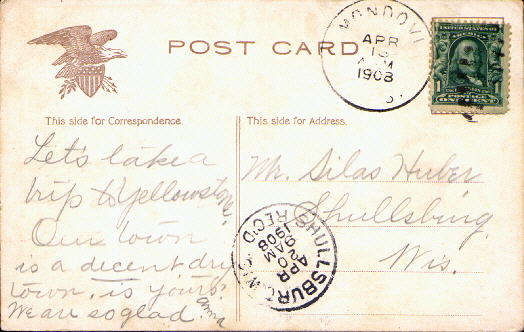 POST CARD
MONDOVI
APR
1908
UNITED STATES OF
AMERICA
1 1
POSTAGE
ONE CENT
This side for Correspondence.
This side for Address.
Let's take a
trip to Yellowstone.
Our town
is a decent dry
town, is yours?
We are so glad. Anna
Mr. Silas Huber
Shullsburg
Wis.
SHULLSBURG, WIS.
REC'D
1908
APR